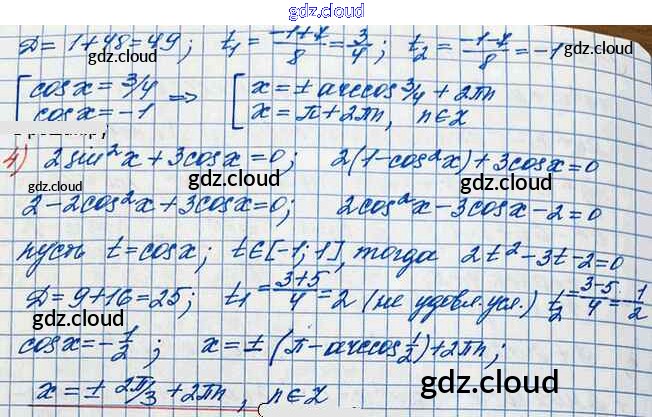 gdz.cloud
gdz.cloud
D = 1+48 = 49; t₁ = (-1+7)/8 = 3/4; t₂ = (-1-7)/8 = -1
gdz.cloud gdz.cloud
[ cos x = 3/4 => [ x = ± arccos 3/4 + 2πn
cos x = -1 x = π + 2πn, n∈Z
4) 2 sin²x + 3cos x = 0; 2(1-cos²x) + 3cos x = 0
gdz.cloud gdz.cloud gdz.cloud
2 - 2cos²x + 3cos x = 0; 2cos²x - 3cos x - 2 = 0
пусть t = cos x; t∈[-1; 1], тогда 2t² - 3t - 2 = 0
D = 9+16 = 25; t₁ = (3+5)/4 = 2 (не удовл. усл.) t₂ = (3-5)/4 = -1/2
gdz.cloud gdz.cloud
cos x = -1/2; x = ± (π - arccos 1/2) + 2πn;
x = ± 2π/3 + 2πn, n∈Z
gdz.cloud gdz.cloud